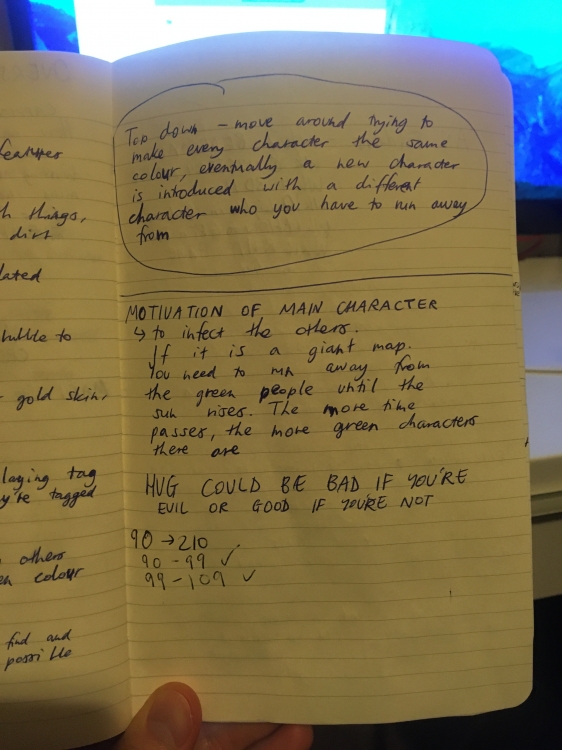 OVER
features
things,
dirt
to
gold skin,
laying tag
y're tagged
others
en colour
find and
possible
Top down - move around trying to
make every character the same
colour, eventually a new character
is introduced with a different
character who you have to run away
from
MOTIVATION OF MAIN CHARACTER
↳ to infect the others.
If it is a giant map.
You need to run away from
the green people until the
sun rises. The more time
passes, the more green characters
there are
HUG COULD BE BAD IF YOU'RE
EVIL OR GOOD IF YOU'RE NOT
90 → 210
90 - 99 ✓
99 - 109 ✓